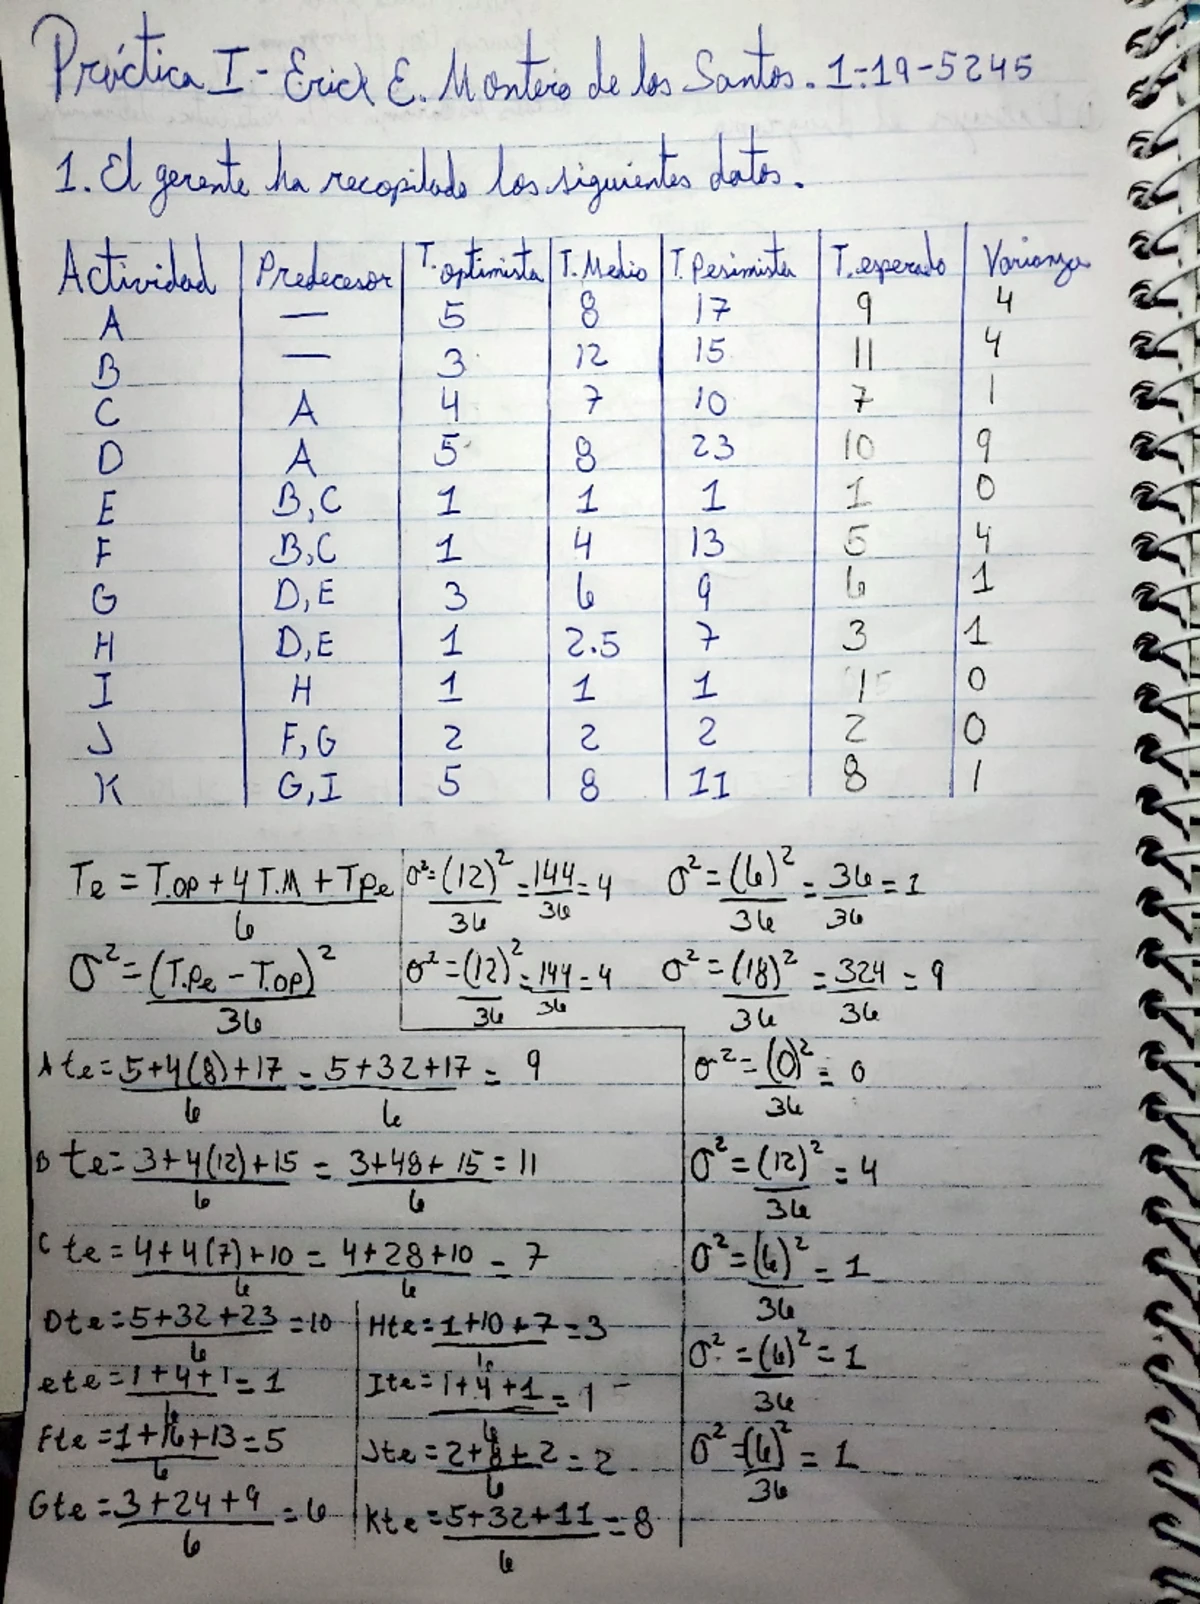 Práctica I - Erick E. Montero de los Santos. 1-19-5245
1. El gerente ha recopilado los siguientes datos.
Actividad Predecesor T. optimista T. Medio T. Pesimista T. esperado Varianza
A — 5 8 17 9 4
B — 3 12 15 11 4
C A 4 7 10 7 1
D A 5 8 23 10 9
E B,C 1 1 1 1 0
F B,C 1 4 13 5 4
G D,E 3 6 9 6 1
H D,E 1 2.5 7 3 1
I H 1 1 1 1 0
J F,G 2 2 2 2 0
K G,I 5 8 11 8 1
Te = T.op + 4 T.M + T.pe / 6 σ² = (12)² / 36 = 144 / 36 = 4 σ² = (6)² / 36 = 36 / 36 = 1
σ² = (T.pe - T.op)² / 36 σ² = (12)² / 36 = 144 / 36 = 4 σ² = (18)² / 36 = 324 / 36 = 9
A te = 5+4(8)+17 / 6 = 5+32+17 / 6 = 9 σ² = (0)² / 36 = 0
B te = 3+4(12)+15 / 6 = 3+48+15 / 6 = 11 σ² = (12)² / 36 = 4
C te = 4+4(7)+10 / 6 = 4+28+10 / 6 = 7 σ² = (6)² / 36 = 1
D te = 5+32+23 / 6 = 10 H te = 1+10+7 / 6 = 3 σ² = (6)² / 36 = 1
e te = 1+4+1 / 6 = 1 I te = 1+4+1 / 6 = 1
F te = 1+16+13 / 6 = 5 J te = 2+8+2 / 6 = 2 σ² = (6)² / 36 = 1
G te = 3+24+9 / 6 = 6 K te = 5+32+11 / 6 = 8